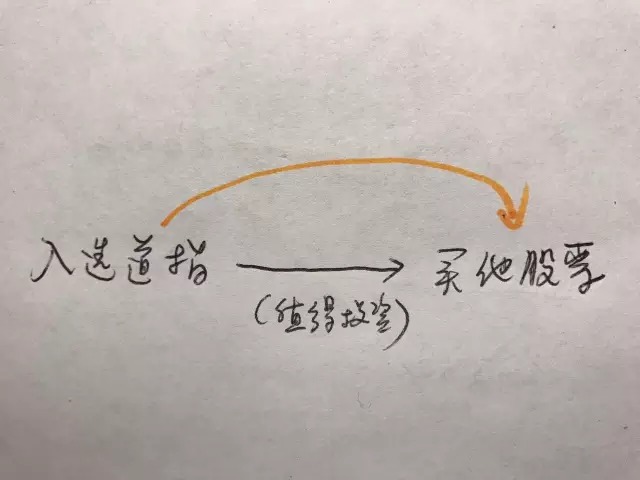 入选道指 买他股票
(值得投资)